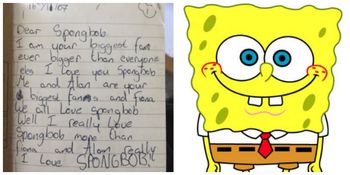 Dear Spongbob
I am your biggest fan
ever bigger than everyone
els I love you Spongbob
Me and Alan are your
bigest fan and fiona
We all Love spongbob
Well I really Love
Spongbob more than
fiona and Alan really
I Love SPONGBOB!